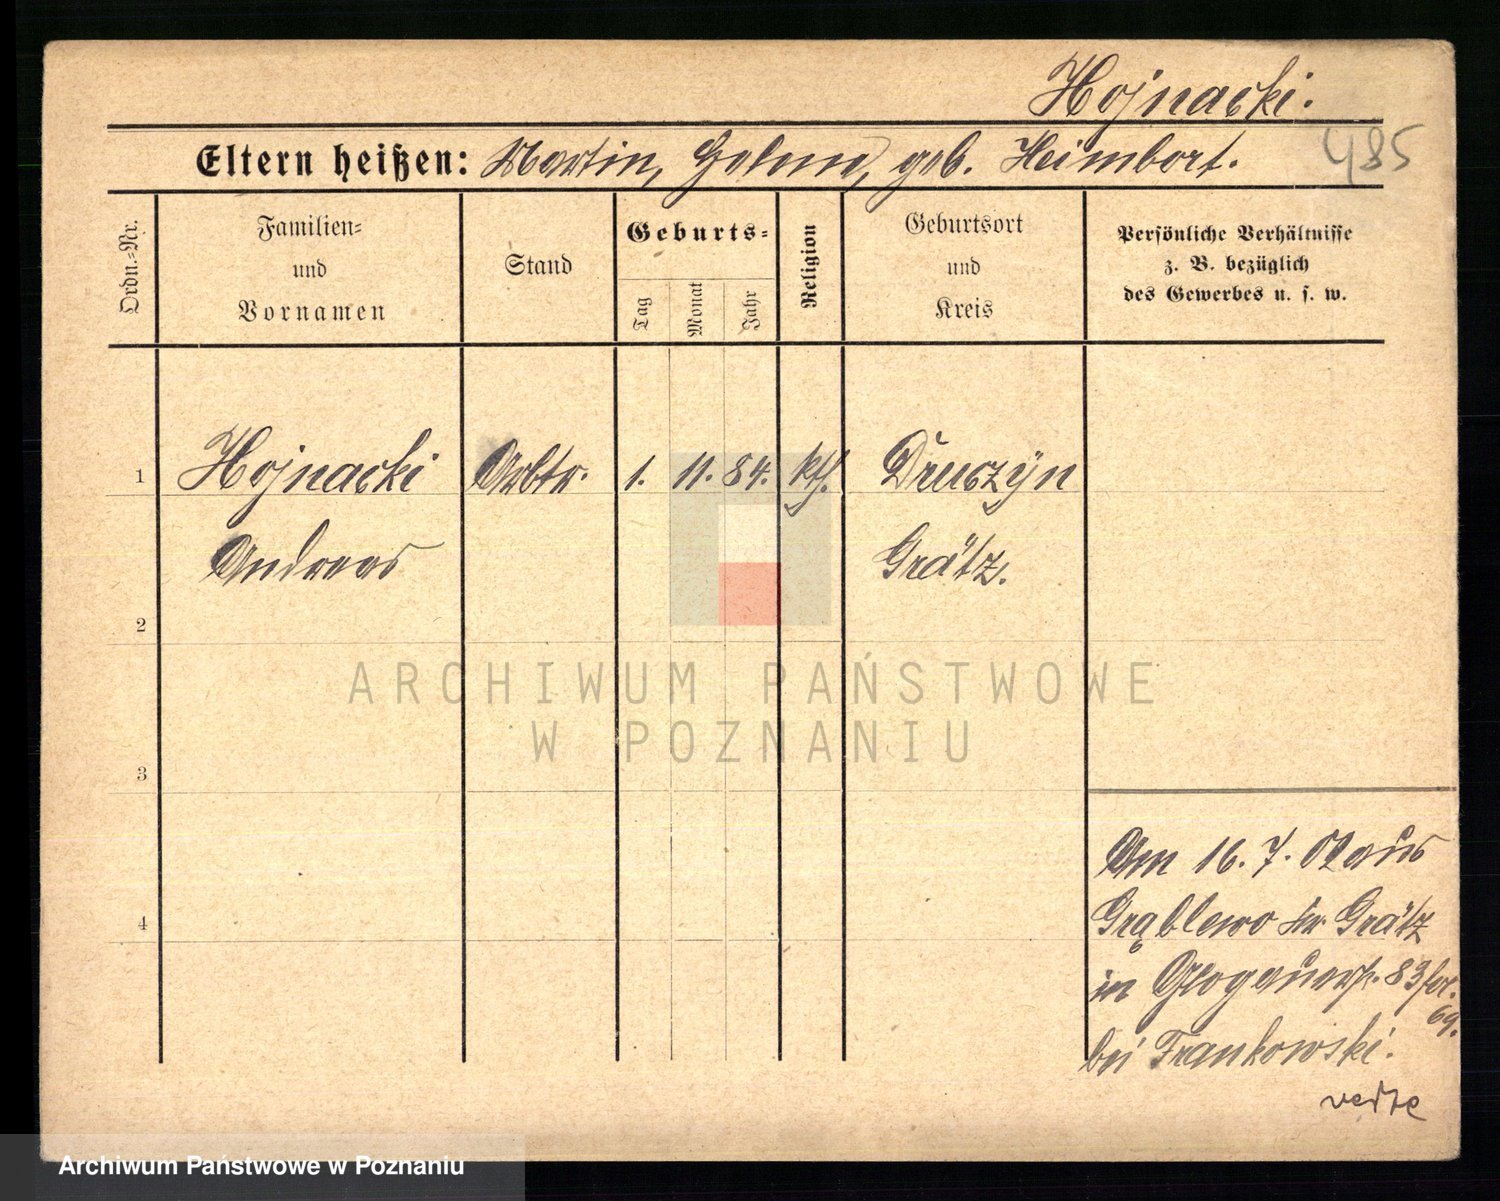 Hojnacki.
485
Eltern heißen: Martin, Helena, geb. Heimbort.
Ordn.-Nr.
Familien-
und
Vornamen
Stand
Geburts-
Tag
Monat
Jahr
Religion
Geburtsort
und
Kreis
Persönliche Verhältnisse
z. B. bezüglich
des Gewerbes u. s. w.
1 Hojnacki Arbtr. 1. 11. 84. kth. Druczyn
Andreas Grätz.
2
3
4
Am 16. 7. 02 aus
Grąblewo Kr Grätz
in Glogauerstr. 83 fol.
69.
bei Frankowski.
verte
ARCHIWUM PAŃSTWOWE
W POZNANIU
Archiwum Państwowe w Poznaniu